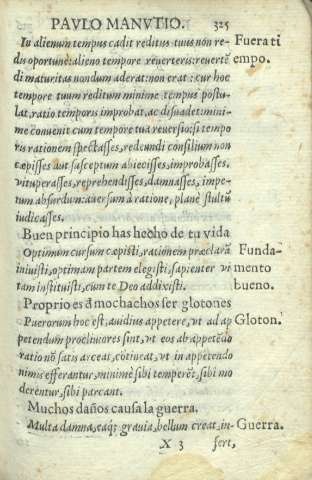 PAVLO MANVTIO. 325
In alienum tempus cadit reditus tuus non re- Fuera ti
dis oportune: alieno tempore reuerteris: reuertẽ empo.
di maturitas nondum aderat: non erat: cur hoc
tempore tuum reditum minime, tempus postu
lat, ratio temporis improbat, ac disuadet: mini-
me cõuenit cum tempore tua reuersio: si tempo
ris rationem spectasses, redeundi consilium non
cœpisses aut susceptum abiecisses, improbasses,
vituperasses, reprehendisses, damnasses, impe-
tum absurdum: auersum à ratione, planè stultũ
iudicasses.
Buen principio has hecho de tu vida
Optimum cursum cœpisti, rationem præclarã Funda-
iniuisti, optimam partem elegisti, sapienter vi mento
tam instituisti, cum te Deo addixisti. bueno.
Proprio es ã mochachos ser glotones
Puerorum hoc est, auidius appetere, vt ad ap Gloton.
petendum procliuiores sint, vt eos ab appetẽdo
ratio nõ satis arceat, cõtineat, vt in appetendo
nimis efferantur, minimè sibi temperẽt, sibi mo
derentur, sibi parcant.
Muchos daños causa la guerra.
Multa damna, eaq; grauia, bellum creat, in- Guerra.
X 3 fert,